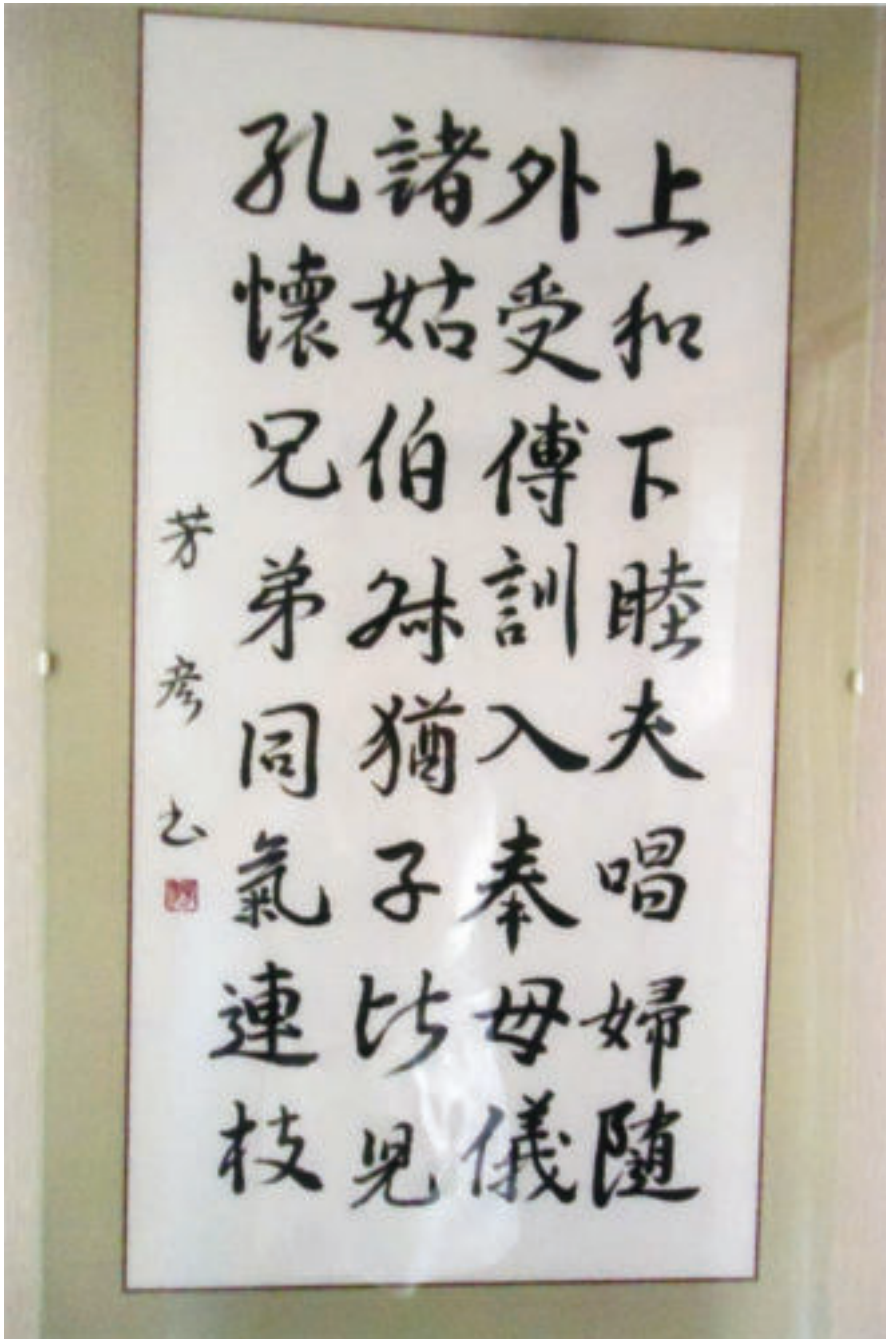 上和下睦夫唱婦隨
外受傅訓入奉母儀
諸姑伯叔猶子比兒
孔懷兄弟同氣連枝
芳彦书